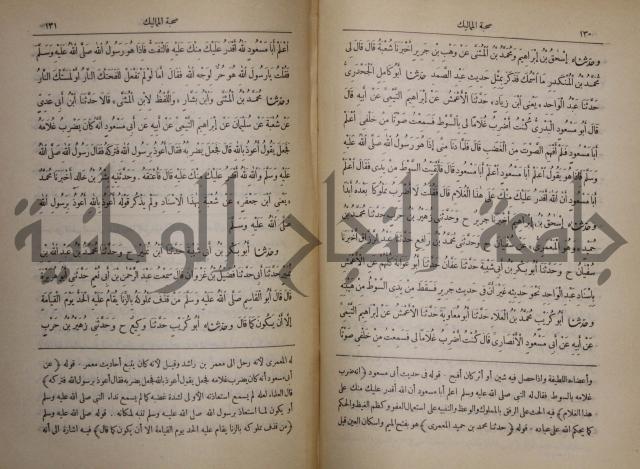 ١٣٠
صحبة المماليك
وحدثناه إسحق بن إبراهيم ومحمد بن المثنى عن وهب بن جرير أخبرنا شعبة قال قال لى
محمد بن المنكدر ما اسمك فذكر بمثل حديث عبد الصمد حدثنا أبو كامل الجحدرى
حدثنا عبد الواحد يعنى ابن زياد حدثنا الأعمش عن إبراهيم التيمى عن أبيه قال
قال أبو مسعود البدرى كنت أضرب غلاما لى بالسوط فسمعت صوتا من خلفى اعلم
أبا مسعود فلم أفهم الصوت من الغضب قال فلما دنا منى إذا هو رسول الله صلى الله عليه
وسلم فاذا هو يقول اعلم أبا مسعود اعلم أبا مسعود قال فألقيت السوط من يدى فقال اعلم
أبا مسعود أن الله أقدر عليك منك على هذا الغلام قال فقلت لا أضرب مملوكا بعده أبدا
وحدثناه إسحق بن إبراهيم أخبرنا جرير ح وحدثنى زهير بن حرب حدثنا محمد بن
حميد وهو المعمرى عن سفيان ح وحدثنى محمد بن رافع حدثنا عبد الرزاق أخبرنا
سفيان ح وحدثنا أبو بكر بن أبى شيبة حدثنا عفان حدثنا أبو عوانة كلهم عن الأعمش
باسناد عبد الواحد نحو حديثه غير أن فى حديث جرير فسقط من يدى السوط من هيبته
وحدثنا أبو كريب محمد بن العلاء حدثنا أبو معاوية حدثنا الأعمش عن إبراهيم التيمى
عن أبيه عن أبى مسعود الأنصارى قال كنت أضرب غلاما لى فسمعت من خلفى صوتا
وأعضاءه اللطيفة واذا حصل فيه شين أو أثر كان أقبح . قوله فى حديث أبى مسعود ﴿انه ضرب
غلامه بالسوط فقال له النبى صلى الله عليه وسلم اعلم أبا مسعود أن الله أقدر عليك منك على
هذا الغلام﴾ فيه الحث على الرفق بالمملوك والوعظ والتنبيه على استعمال العفو وكظم الغيظ والحكم
كما يحكم الله على عباده . قوله ﴿حدثنا محمد بن حميد المعمرى﴾ هو بفتح الميم واسكان العين قيل
صحبة المماليك
١٣١
اعلم أبا مسعود لله أقدر عليك منك عليه فالتفت فاذا هو رسول الله صلى الله عليه وسلم
فقلت يا رسول الله هو حر لوجه الله فقال أما لو لم تفعل للفحتك النار أو لمستك النار
وحدثنا محمد بن المثنى وابن بشار واللفظ لابن المثنى قالا حدثنا ابن أبى عدى
عن شعبة عن سليمان عن إبراهيم التيمى عن أبيه عن أبى مسعود أنه كان يضرب غلامه
فجعل يقول أعوذ بالله قال فجعل يضربه فقال أعوذ برسول الله فتركه فقال رسول الله صلى الله
عليه وسلم والله لله أقدر عليك منك عليه قال فأعتقه . وحدثنيه بشر بن خالد أخبرنا محمد
يعنى ابن جعفر عن شعبة بهذا الاسناد ولم يذكر قوله أعوذ بالله أعوذ برسول الله
صلى الله عليه وسلم
وحدثنا أبو بكر بن أبى شيبة حدثنا ابن نمير ح وحدثنا محمد بن عبد الله بن
نمير حدثنا أبى حدثنا فضيل بن غزوان قال سمعت عبد الرحمن بن أبى نعم حدثنى أبو هريرة
قال قال أبو القاسم صلى الله عليه وسلم من قذف مملوكه بالزنا يقام عليه الحد يوم القيامة
إلا أن يكون كما قال وحدثناه أبو كريب حدثنا وكيع ح وحدثنى زهير بن حرب
له المعمرى لأنه رحل الى معمر بن راشد وقيل لأنه كان يتبع أحاديث معمر . قوله ﴿عن
أبى مسعود أنه كان يضرب غلامه فجعل يقول أعوذ بالله فجعل يضربه فقال أعوذ برسول الله فتركه﴾
قال العلماء لعله لم يسمع استعاذته الأولى لشدة غضبه كما لم يسمع نداء النبى صلى الله عليه وسلم
أو يكون لما استعاذ برسول الله صلى الله عليه وسلم تنبه لمكانه . قوله صلى الله عليه وسلم
﴿من قذف مملوكه بالزنا يقام عليه الحد يوم القيامة الا أن يكون كما قال﴾ فيه اشارة الى أنه
جامعة النجاح الوطنية